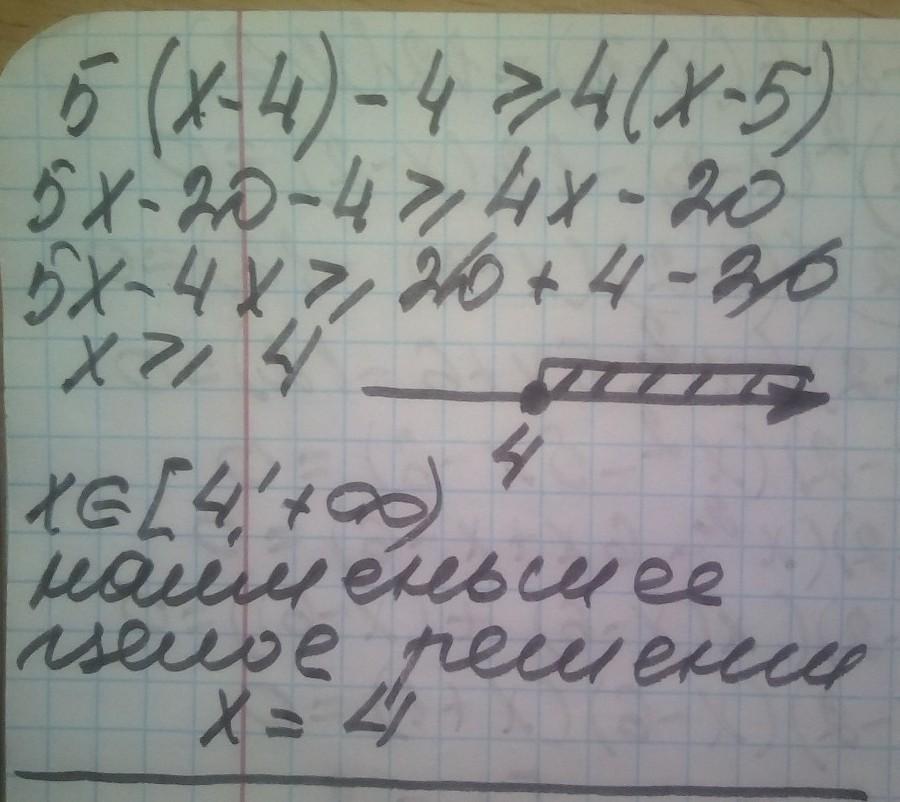 5(x-4)-4 ⩾ 4(x-5)
5x-20-4 ⩾ 4x-20
5x-4x ⩾ 20+4-20
x ⩾ 4
4
x∈[4;+∞)
наименьшее
целое решени
x = 4